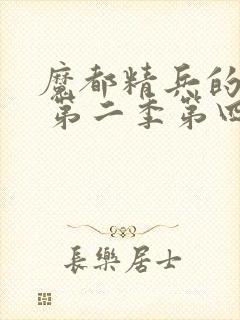 魔都精兵的
第二季第四
長樂居士